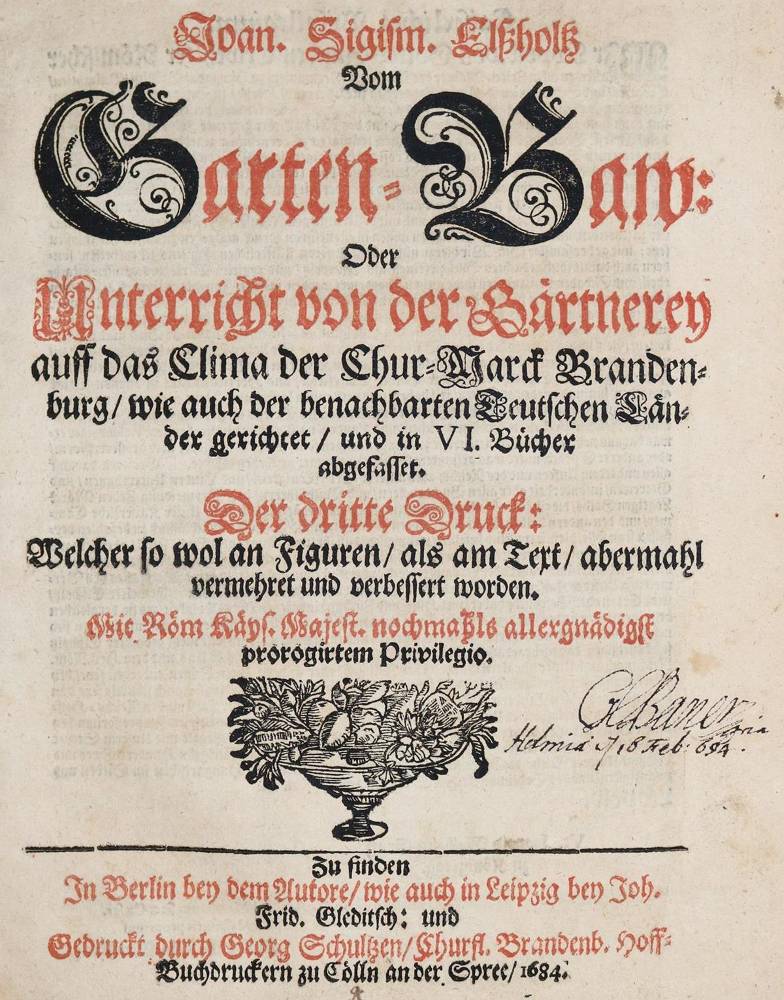 Joan. Sigism. Elßholtz
Vom
Garten-Baw:
Oder
Unterricht von der Gärtnerey
auff das Clima der Chur-Marck Branden-
burg/ wie auch der benachbarten Teutschen Län-
der gerichtet/ und in VI. Bücher
abgefasset.
Der dritte Druck:
Welcher so wol an Figuren/ als am Text/ abermahl
vermehret und verbessert worden.
Mit Röm Käys. Majest. nochmahls allergnädigst
prorogirtem Privilegio.
Holmia 18 Feb: 694.
Zu finden
In Berlin bey dem Autore/ wie auch in Leipzig bey Joh.
Frid. Gleditsch: und
Gedruckt durch Georg Schultzen/ Churfl. Brandenb. Hoff-
Buchdruckern zu Cölln an der Spree/ 1684.